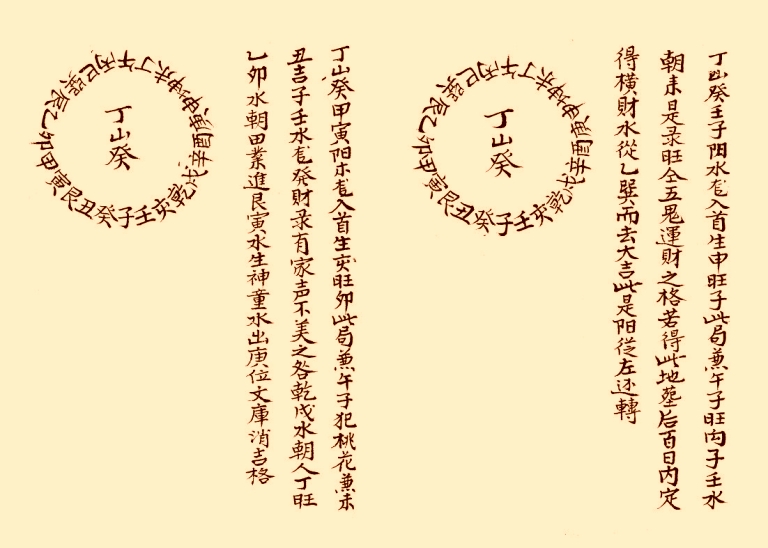 丁山癸壬子阳水尨入首生申旺子此局兼午子旺向子壬水
朝来是录旺仝五鬼運財之格若得此地塟后百日内定
得橫財水從乙巽而去大吉此是阳從左还轉
丁山癸
午丁未坤申庚酉辛戌乾亥壬子癸丑艮寅甲卯乙辰巽巳丙
丁山癸甲寅阳木尨入首生亥旺卯此局兼午子犯桃花兼未
丑吉子壬水尨發財录有家声不美之咎乾戌水朝人丁旺
乙卯水朝田業進艮寅水生神童水出庚位文庫消吉格
丁山癸
午丁未坤申庚酉辛戌乾亥壬子癸丑艮寅甲卯乙辰巽巳丙